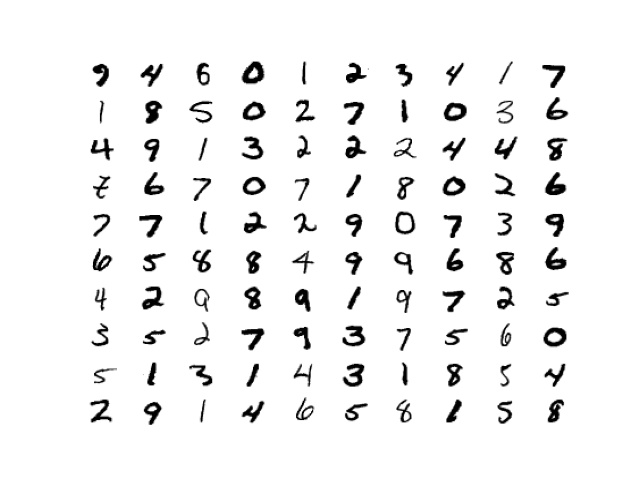 9 4 6 0 1 2 3 4 1 7
1 8 5 0 2 7 1 0 3 6
4 9 1 3 2 2 2 4 4 8
7 6 7 0 7 1 8 0 2 6
7 7 1 2 2 9 0 7 3 9
6 5 8 8 4 9 9 6 8 6
4 2 9 8 9 1 9 7 2 5
3 5 2 7 9 3 7 5 6 0
5 1 3 1 4 3 1 8 5 4
2 9 1 4 6 5 8 1 5 8